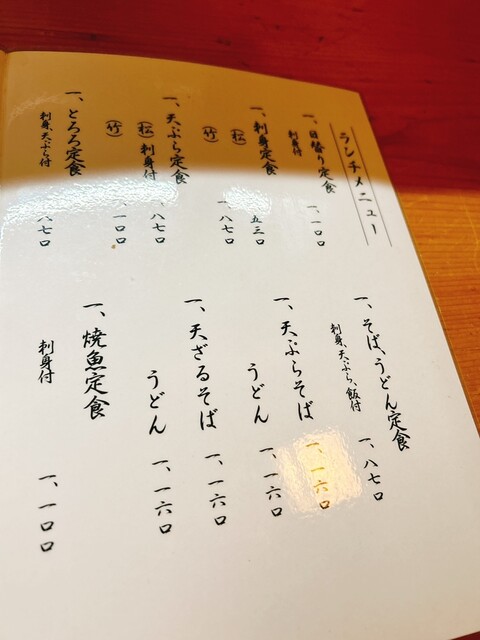 ランチメニュー
一、日替り定食
刺身付
一、一〇〇
一、刺身定食
(松)
五三〇
(竹)
一、八七〇
一、天ぷら定食
(松) 刺身付
一、八七〇
(竹)
一、一〇〇
一、とろろ定食
刺身、天ぷら付
八七〇
一、そば、うどん定食
刺身、天ぷら、飯付
一、八七〇
一、天ぷらそば
一、一六〇
うどん
一、一六〇
一、天ざるそば
一、一六〇
うどん
一、一六〇
一、焼魚定食
刺身付
一、一〇〇